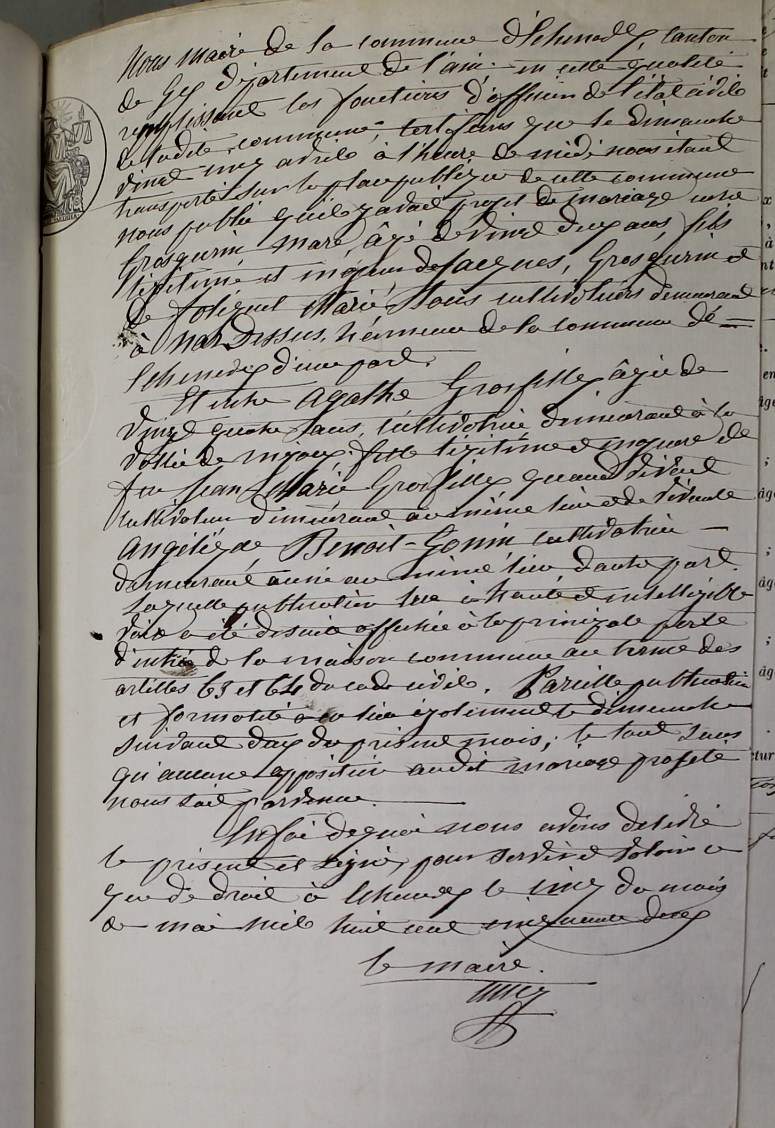 Nous maire de la commune d'Echenevex, canton
de Gex département de l'ain. en cette qualité
remplissant les fonctions d'officier de l'état civile
de ladite commune, certifions que le dimanche
vingt cinq avrile à l'heure de midi nous étant
transporté sur la place publique de cette commune
nous publié qu'ile y avait projet de mariage entre
Grosgurin, marc, âgé de vingt deux ans, fils
légitime et majeur de Jacques, Grosgurin et
de Marie, tous cultivateurs demeurant
à Naz Dessus, hameau de la commune dé=
Echenevex d'une part.
Et entre Agathe Grosfillex âgée de
vingt quatre ans, cultivatrice demeurant à la
vallée de mijoux, fille légitime et majeure de
feu Jean Marie Grosfillex quand vivait
cultivateur demeurant au même lieu et de vivante
Angélique, Benoit-Gonin cultivatrice —
demeurant aussi au même lieu d'autre part.
Laquelle publication lue à haute et intelligible
voix a été de suite affichée à la principale porte
d'entrée de la maison commune au terme des
articles 63 et 64 du code civile. Pareille publication
et formalité a eu lieu également le dimanche
suivant deux du présent mois; le tout sans
qu'aucune opposition audit mariage projeté
nous soit parvenue.
En foi de quoi nous avons délivré
le présent et signé, pour servir et valoir ce
que de droit à Echenevex le cinq du mois
de mai mil huit cent cinquante deux
le maire.